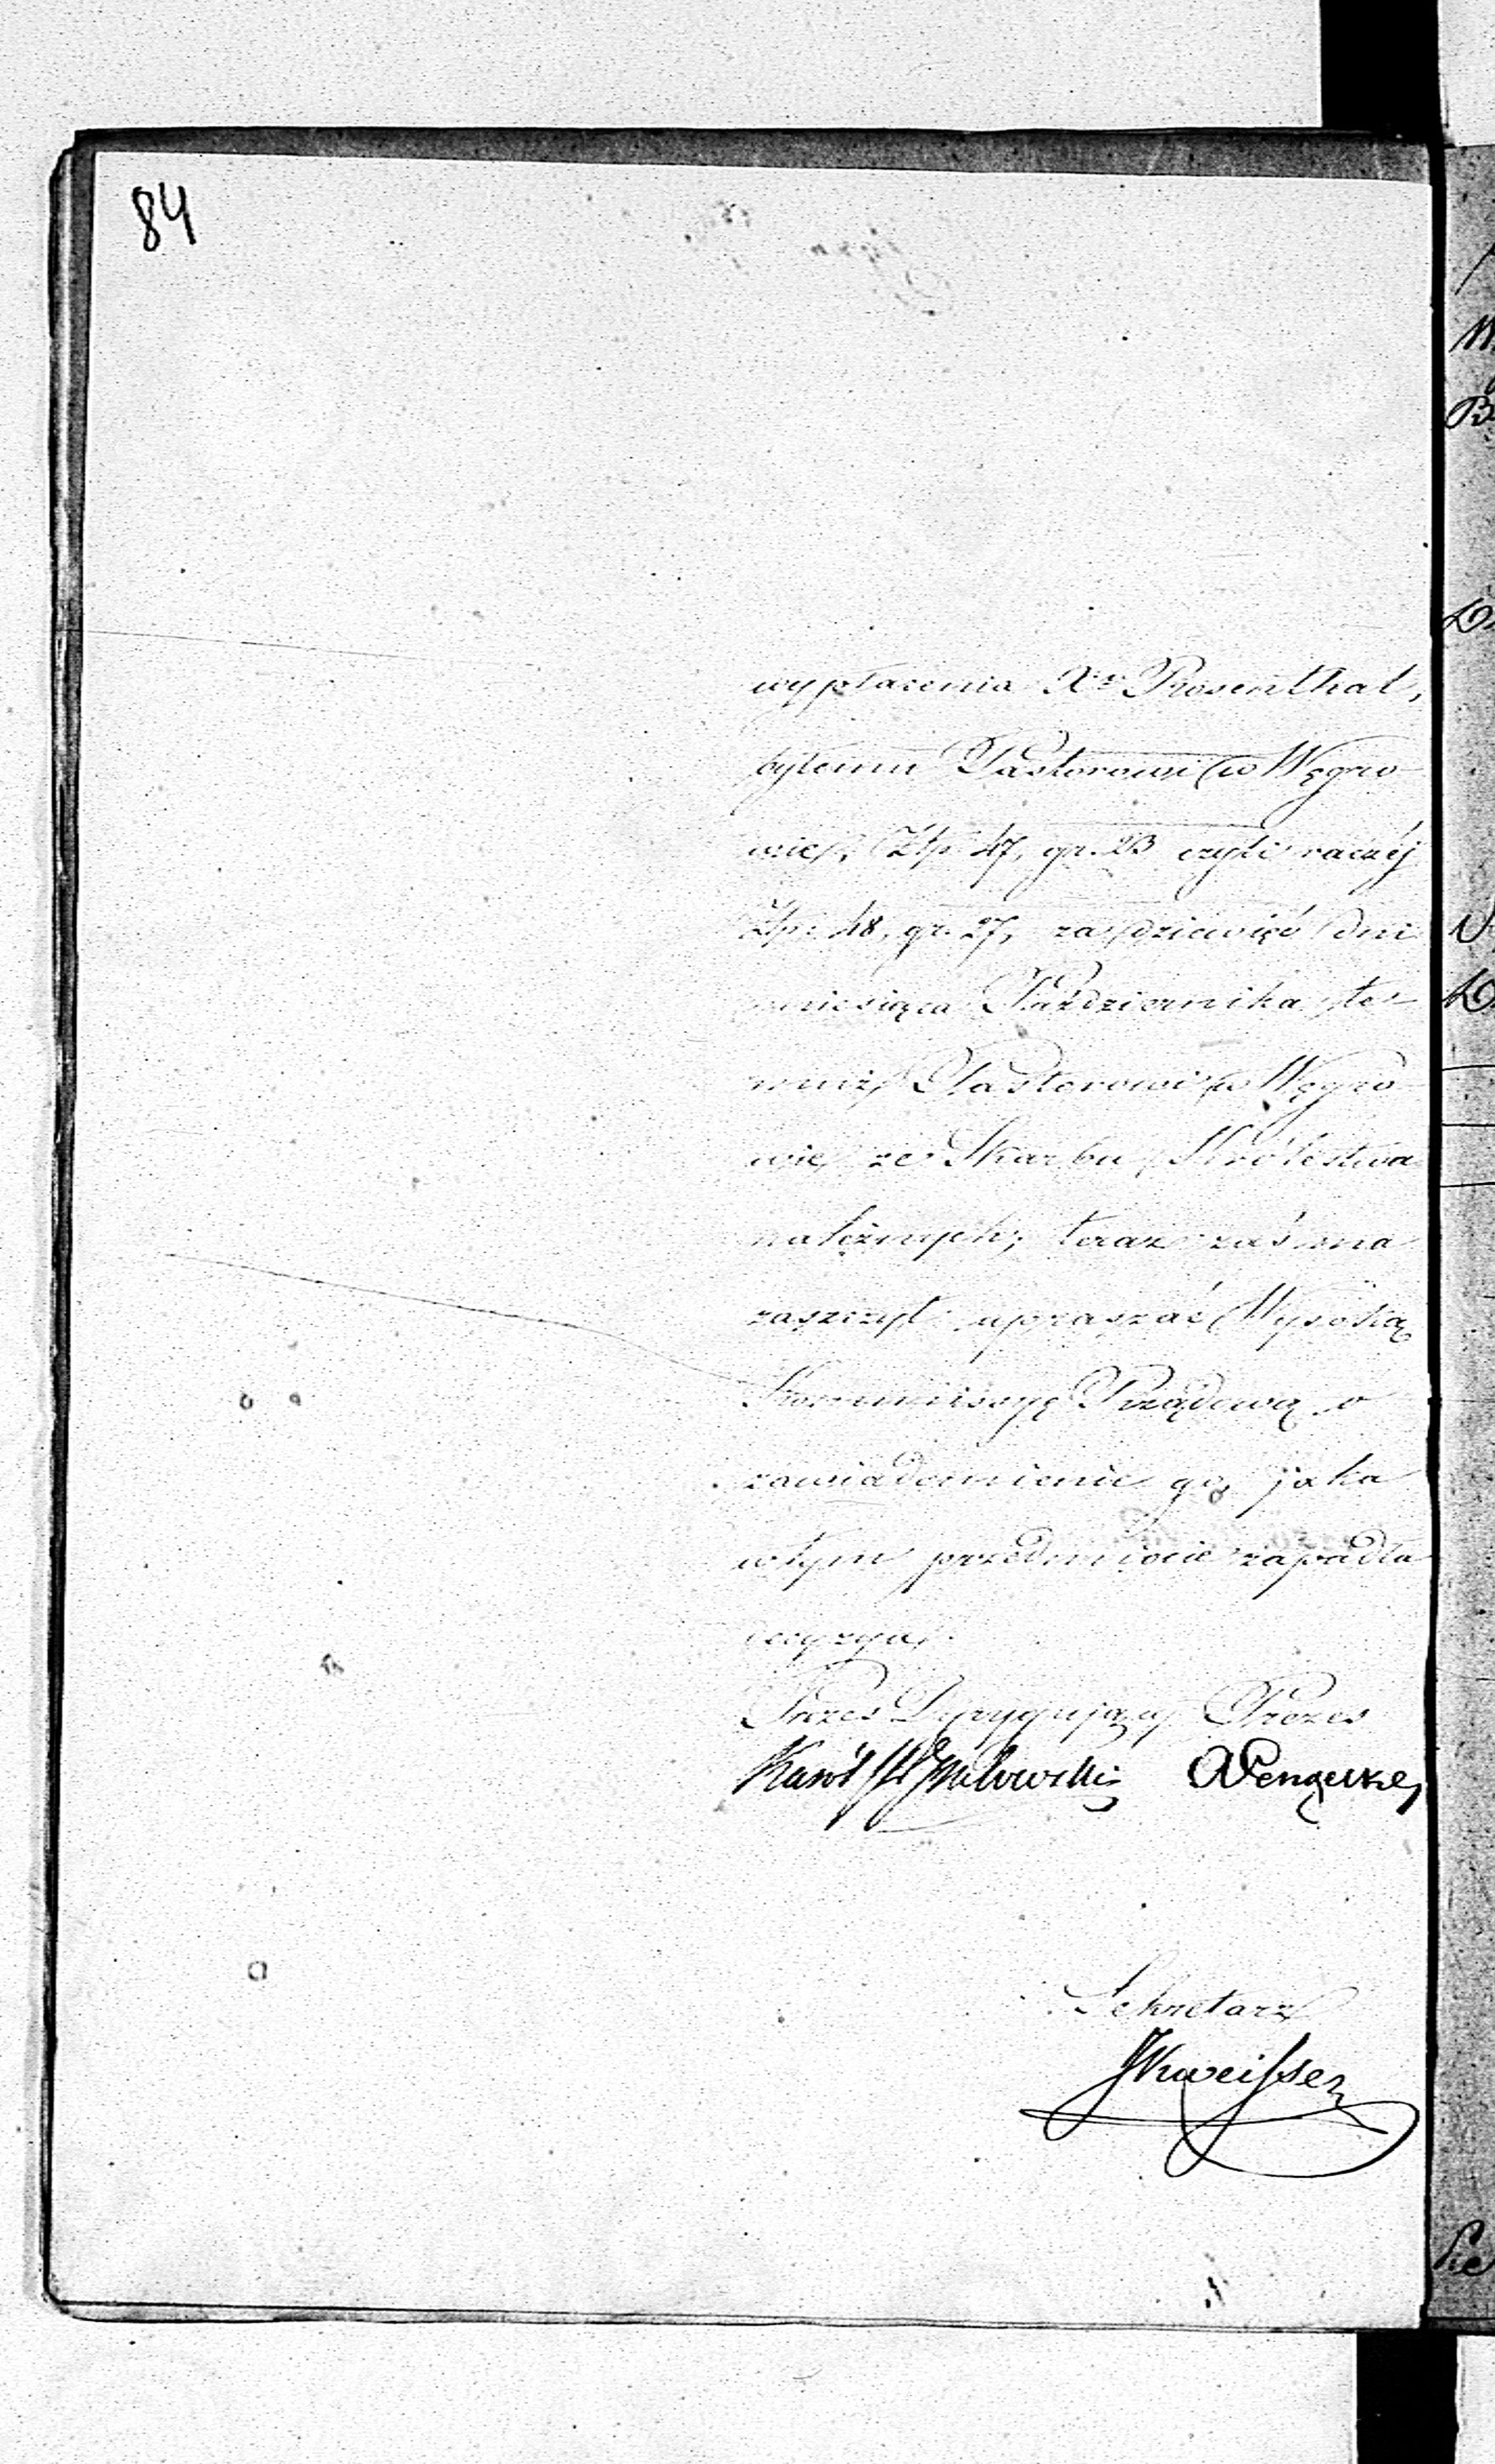 84
wypłacenia Xu Rosenthal,
byłemu Pastorowi w Węgro-
wie, Złp. 47, gr. 23 czyli raczéj
Złp. 48, gr. 27, za dziewięć dni
miesiąca Października te-
muż Pastorowi w Węgro-
wie ze Skarbu Królestwa
należnych; teraz zaś ma
zaszczyt upraszać Wysoką
Kommissyę Rządową o
zawiadomienie go, jaka
w tym przedmiocie zapadła
decyzya.
Prezes Dyrygujący Prezes
Karól
Sekretarz